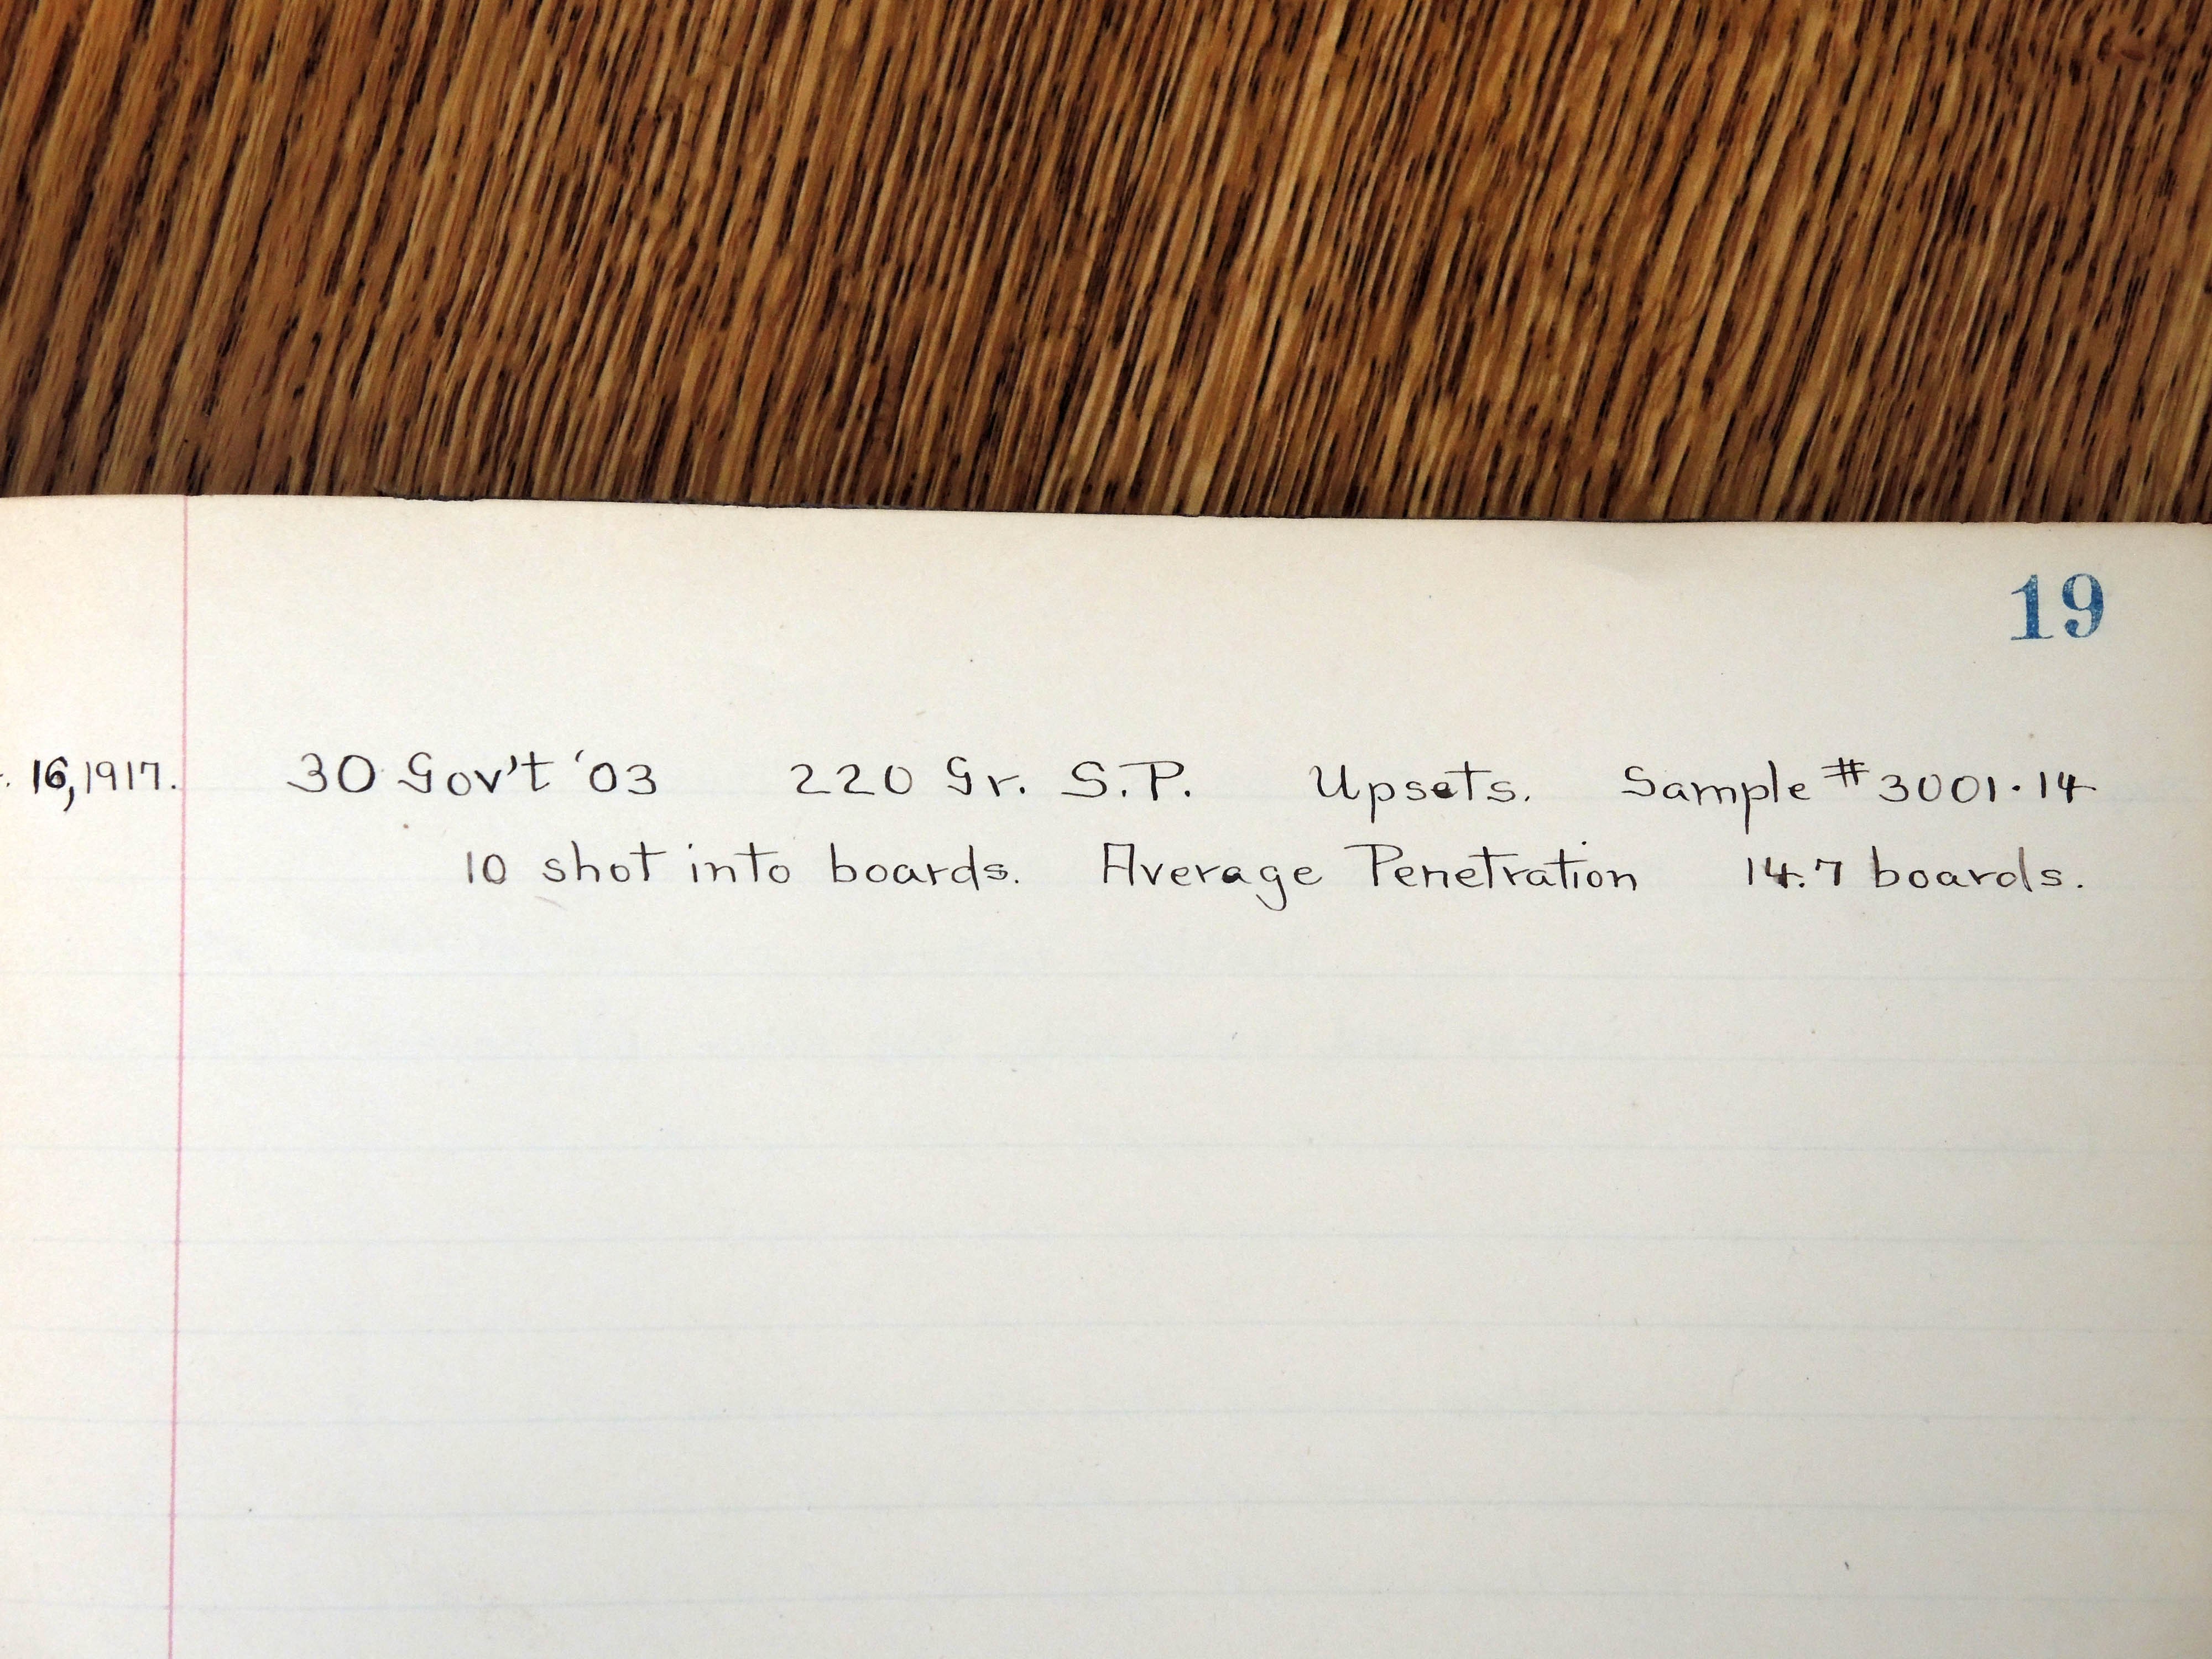 19
. 16,1917. 30 Gov't '03 220 Gr. S.P. Upsets. Sample #3001.14
10 shot into boards. Average Penetration 14.7 boards.